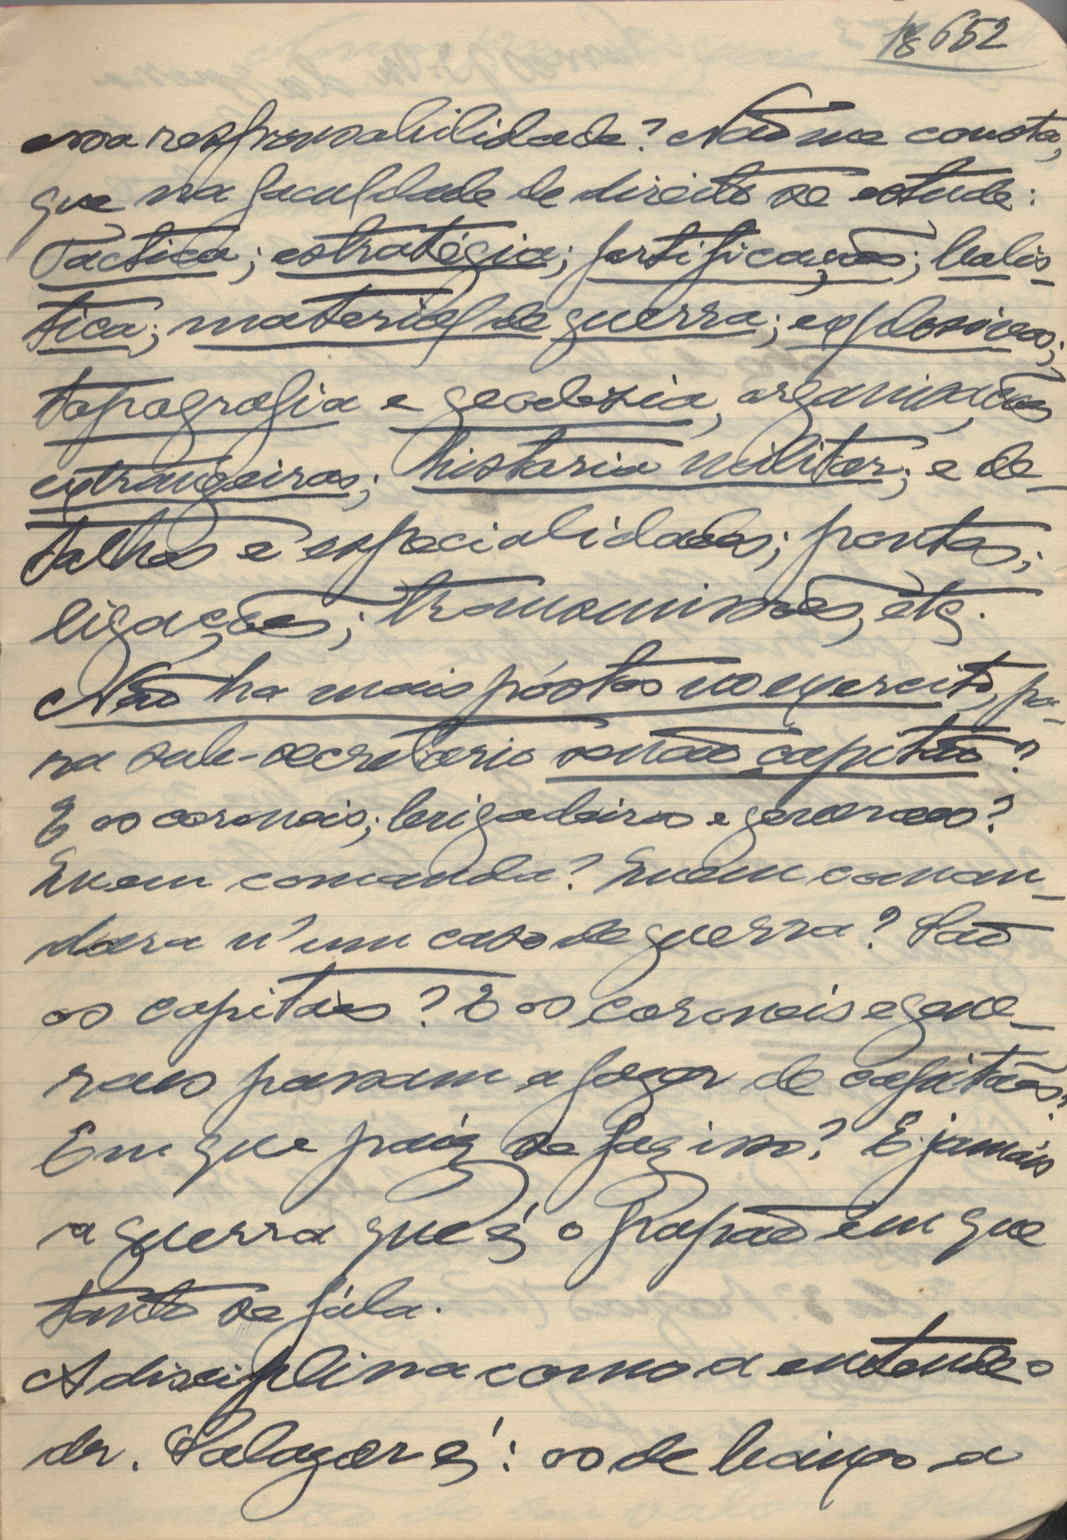 18652
nsa responsabilidade? Não me consta,
que na faculdade de direito se estude:
Táctica; estratégia; fortificações; balis-
tica; material de guerra; explosivos;
topografia e geodesia, organisações
extrangeiras; historia militar; e de-
talhes e especialidades; pontes;
ligações; transmissões, etç.
Não ha mais póstos no exercito, pa-
ra sub-secretario senão capitão?
E os coroneis; brigadeiros e generaes?
Quem comanda? Quem coman-
dara n'um caso de guerra? São
os capitães? E os coroneis e gene-
raes passam a fazer de capitães?
Em que paiz se faz isso? E jamáis
a guerra que é o papão em que
tanto se fála.
A disciplina como a entende o
dr. Salazar é: os de baixo a